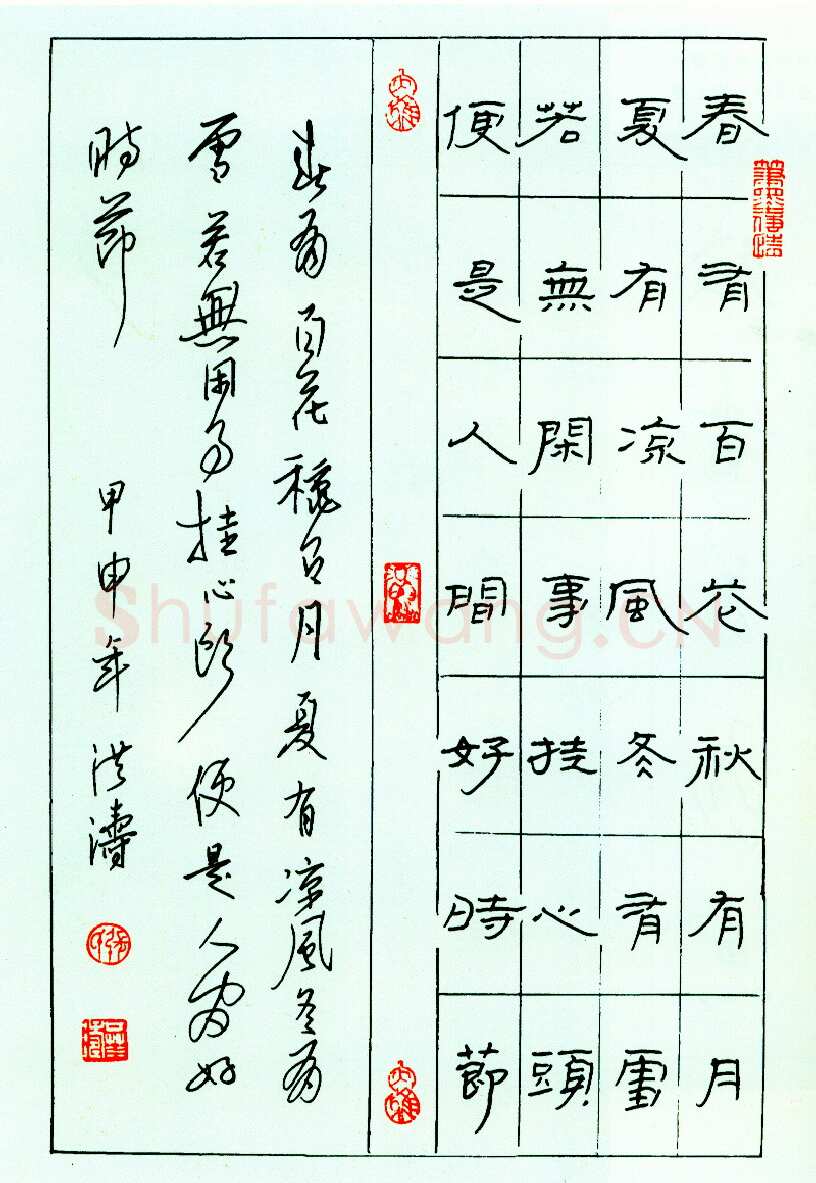 春有百花秋有月
夏有凉風冬有雪
若無閑事挂心頭
便是人間好時節
春有百花秋有月夏有凉風冬有
雪若無閑事挂心頭便是人間好
時節 甲申年 洪濤
Shufawang.CN